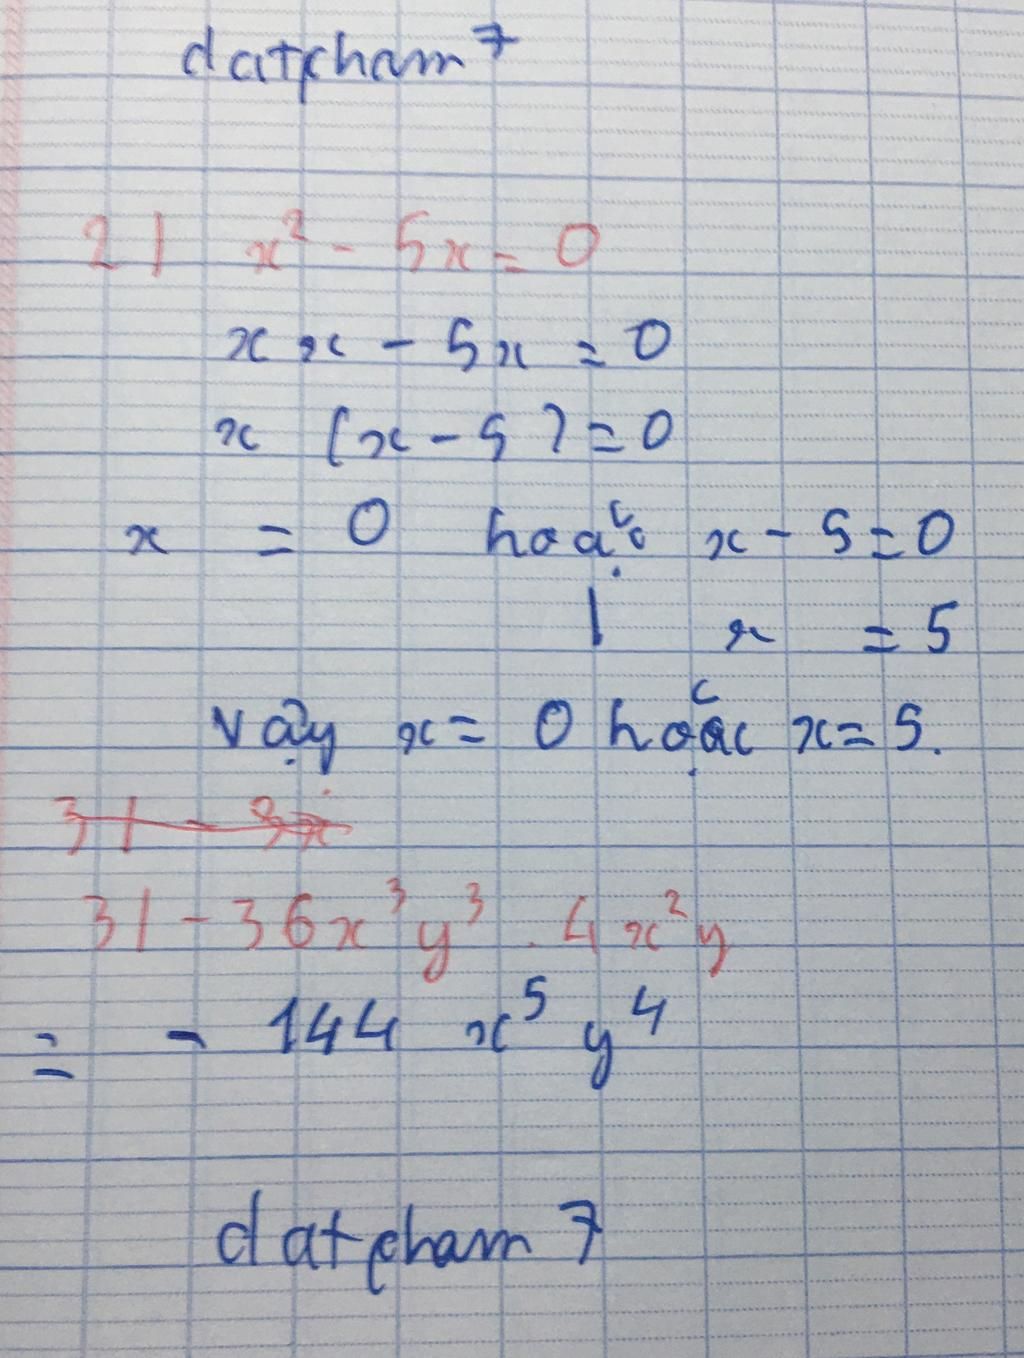 datpham7
2) x² - 5x = 0
x x - 5x = 0
x (x - 5) = 0
x = 0 hoặc x - 5 = 0
| x = 5
Vậy x = 0 hoặc x = 5.
3) - 3x
3) - 36x³y³ . 4x²y
= - 144 x⁵ y⁴
datpham7